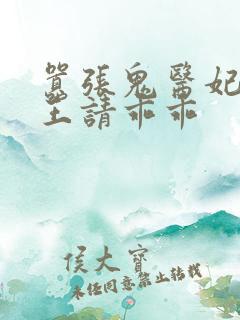 囂張鬼醫妃
王請乖乖
侯大寶
未經同意禁止轉載